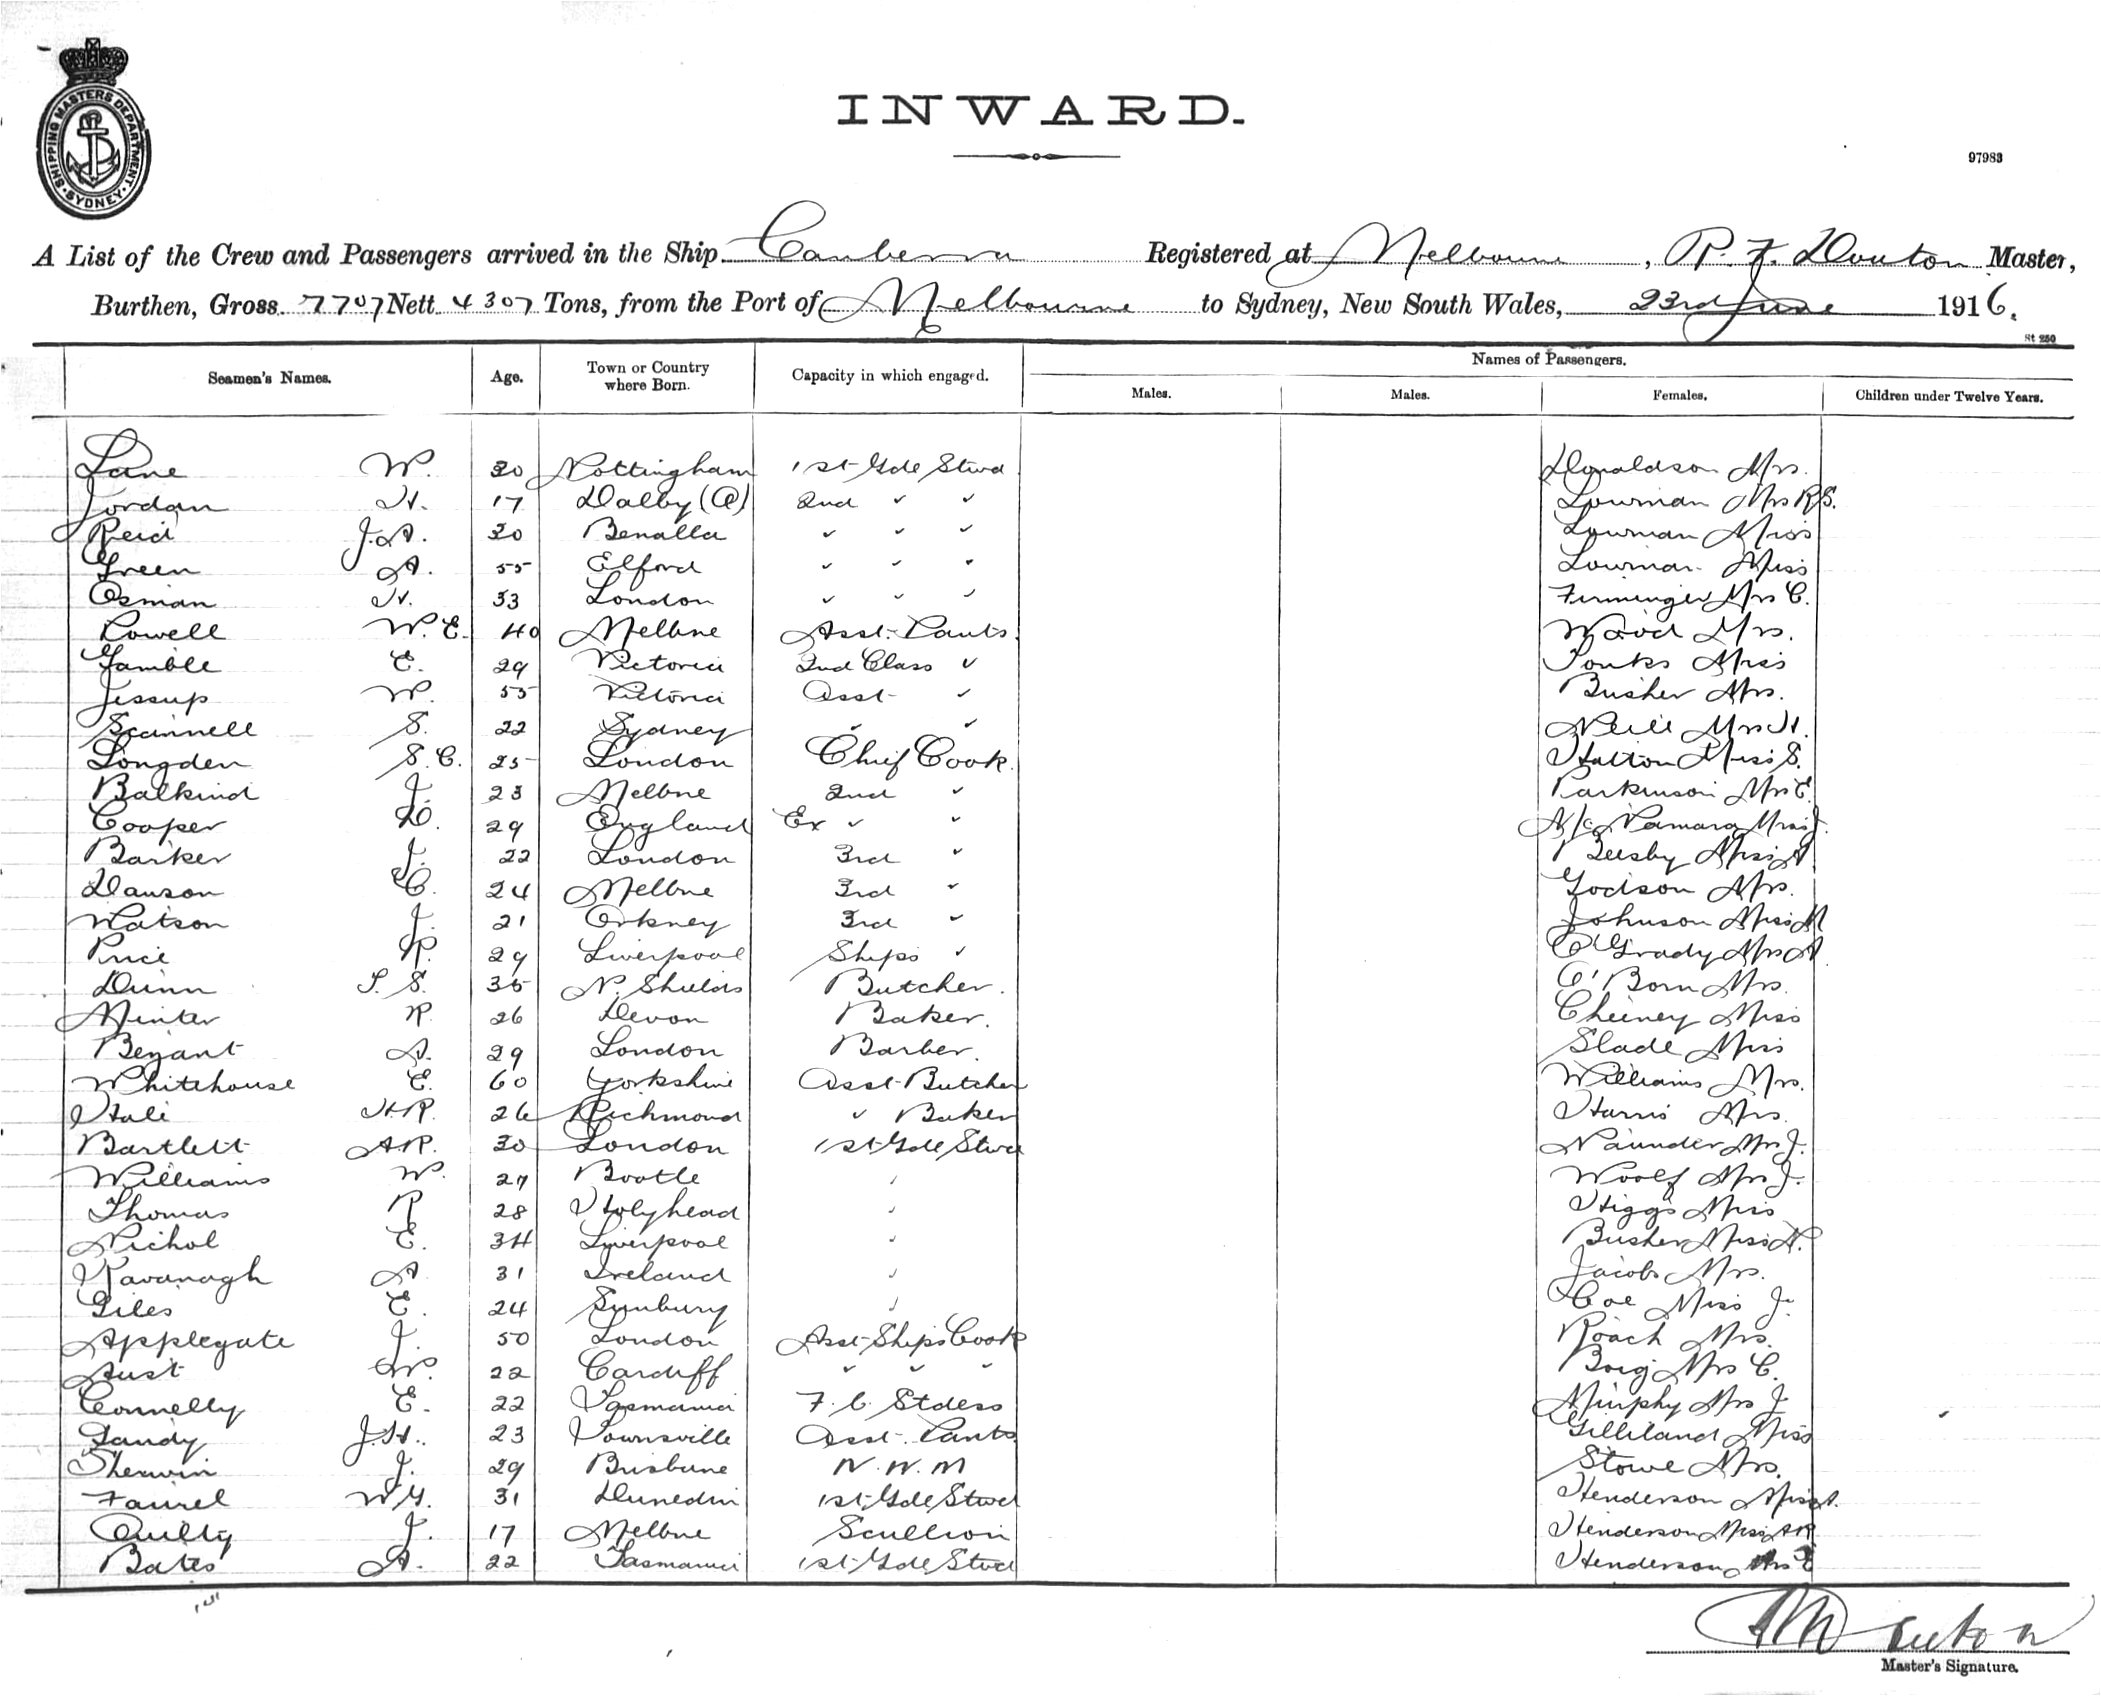 SHIPPING MASTERS DEPARTMENT · SYDNEY ·
INWARD.
97983
A List of the Crew and Passengers arrived in the Ship Canberra Registered at Melbourne, R. F. Douton Master,
Burthen, Gross 7707 Nett 4307 Tons, from the Port of Melbourne to Sydney, New South Wales, 23rd June 1916.
St 250
Seamen's Names. Age. Town or Country where Born. Capacity in which engaged. Names of Passengers.
Males. Males. Females. Children under Twelve Years.
Lane W. 30 Nottingham 1st Gde Stwd Donaldson Mrs.
Jordan H. 17 Dalby (Q) 2nd " " Lowman Mrs R S.
Reid J.A. 30 Benalla " " " Lowman Miss
Green A. 55 Elford " " " Lowman Miss
Osman H. 33 London " " " Firminger Mrs C.
Powell W. E. 40 Melbne Asst. Pants. Wood Mrs.
Gamble E. 29 Victoria 2nd Class " Tonks Miss
Jessup W. 55 Victoria Asst " Busher Mrs.
Scannell S. 22 Sydney " " Neill Mrs H.
Longden S. C. 25 London Chief Cook. Hatton Miss S.
Balkind J. 23 Melbne 2nd " Parkinson Mrs E.
Cooper D. 29 England Ex " " McNamara Miss J.
Barker J. 22 London 3rd " Beesby Miss A
Dawson C. 24 Melbne 3rd " Godson Mrs.
Watson J. 21 Orkney 3rd " Johnson Miss M
Price R. 29 Liverpool Ships " O'Grady Mrs A
Dunn T. S. 35 N. Shields Butcher. O'Born Mrs.
Minter R. 26 Devon Baker. Cheiney Miss
Bezant A. 29 London Barber. Slade Miss
Whitehouse E. 60 Yorkshire Asst Butcher Williams Mrs.
Hale H.R. 26 Richmond " Baker Harris Mrs.
Bartlett A.R. 30 London 1st Gde Stwd Naunder Mrs J.
Williams W. 27 Bootle " Woolf Mrs J.
Thomas R 28 Holyhead " Higgs Miss
Nichol E. 34 Liverpool " Busher Miss N.
Kavanagh A 31 Ireland " Jacobs Mrs.
Giles E. 24 Sunbury " Coe Miss J.
Applegate J. 50 London Asst Ships Cook Roach Mrs.
Aust W. 22 Cardiff " " " Borg Mrs C.
Connelly E. 22 Tasmania F. C. Stdess Murphy Mrs J
Gandy J.H. 23 Townsville Asst. Pants Gilliland Miss
Sherwin J. 29 Brisbane N. W. M Stowe Mrs.
Faurel W G. 31 Dunedin 1st Gde Stwd Henderson Miss A.
Quilty J. 17 Melbne Scullion Henderson Miss A R
Bates A. 22 Tasmania 1st Gde Stwd Henderson Mrs E
Master's Signature.